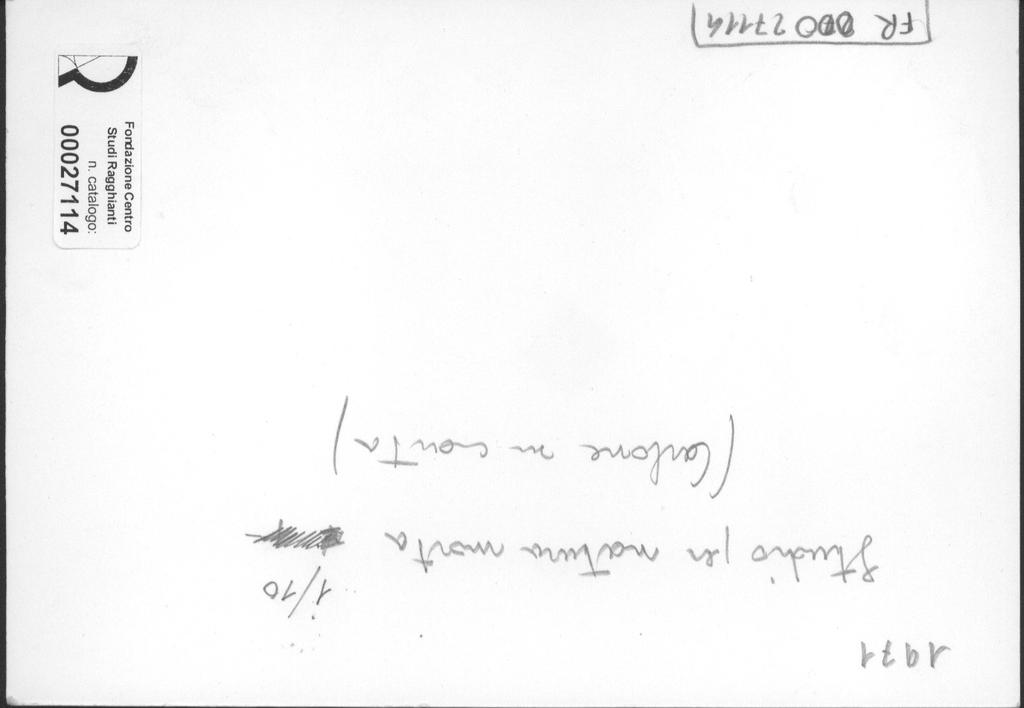 1971
1/10
Studio per natura morta
(Carbone su carta)
FR 00027114
Fondazione Centro
Studi Ragghianti
n. catalogo:
00027114